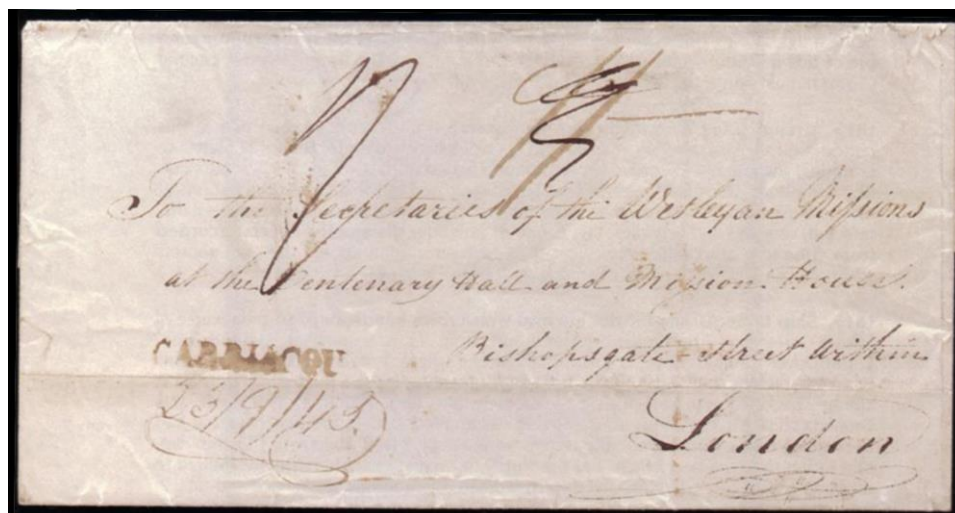 To the Secretaries of the Wesleyan Missions
at the Centenary Hall and Mission House.
Bishopsgate street Within
CARRIACOU
23/9/45.
London